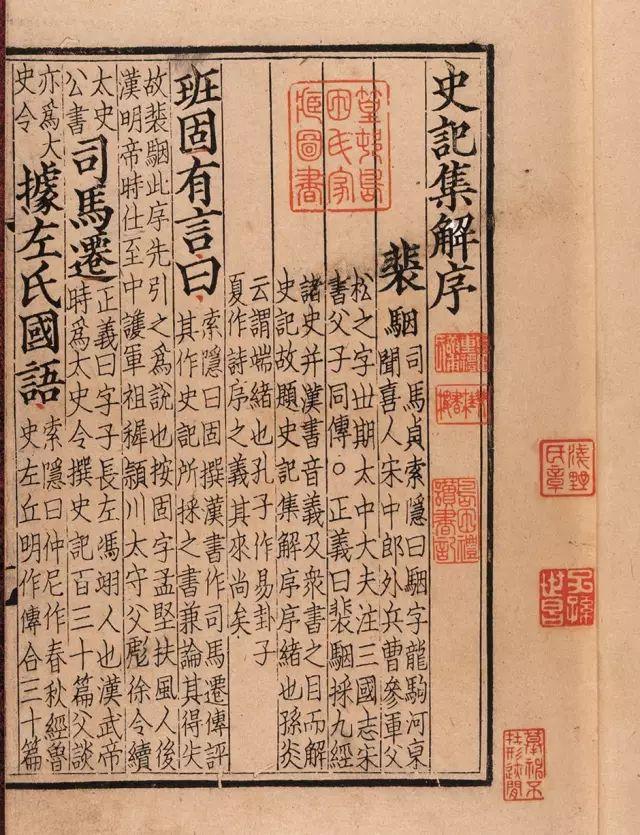 史記集解序
裴駰
司馬貞索隱曰駰字龍駒河東
聞喜人宋中郎外兵曹參軍父
松之字世期太中大夫注三國志宋
書父子同傳○正義曰裴駰採九經
諸史并漢書音義及衆書之目而解
史記故題史記集解序序緒也孫炎
云謂端緒也孔子作易卦子
夏作詩序之義其來尚矣
班固有言曰
索隱曰固撰漢書作司馬遷傳評
其作史記所採之書兼論其得失
故裴駰此序先引之為說也按固字孟堅扶風人後
漢明帝時仕至中護軍祖穉潁川太守父彪徐令續
太史
公書
司馬遷
正義曰字子長左馮翊人也漢武帝
時為太史令撰史記百三十篇父談
亦為大
史令
據左氏國語
索隱曰仲尼作春秋經魯
史左丘明作傳合三十篇
篁邨島
田氏家
藏圖書
島田重禮
讀書記
淺野
氏章